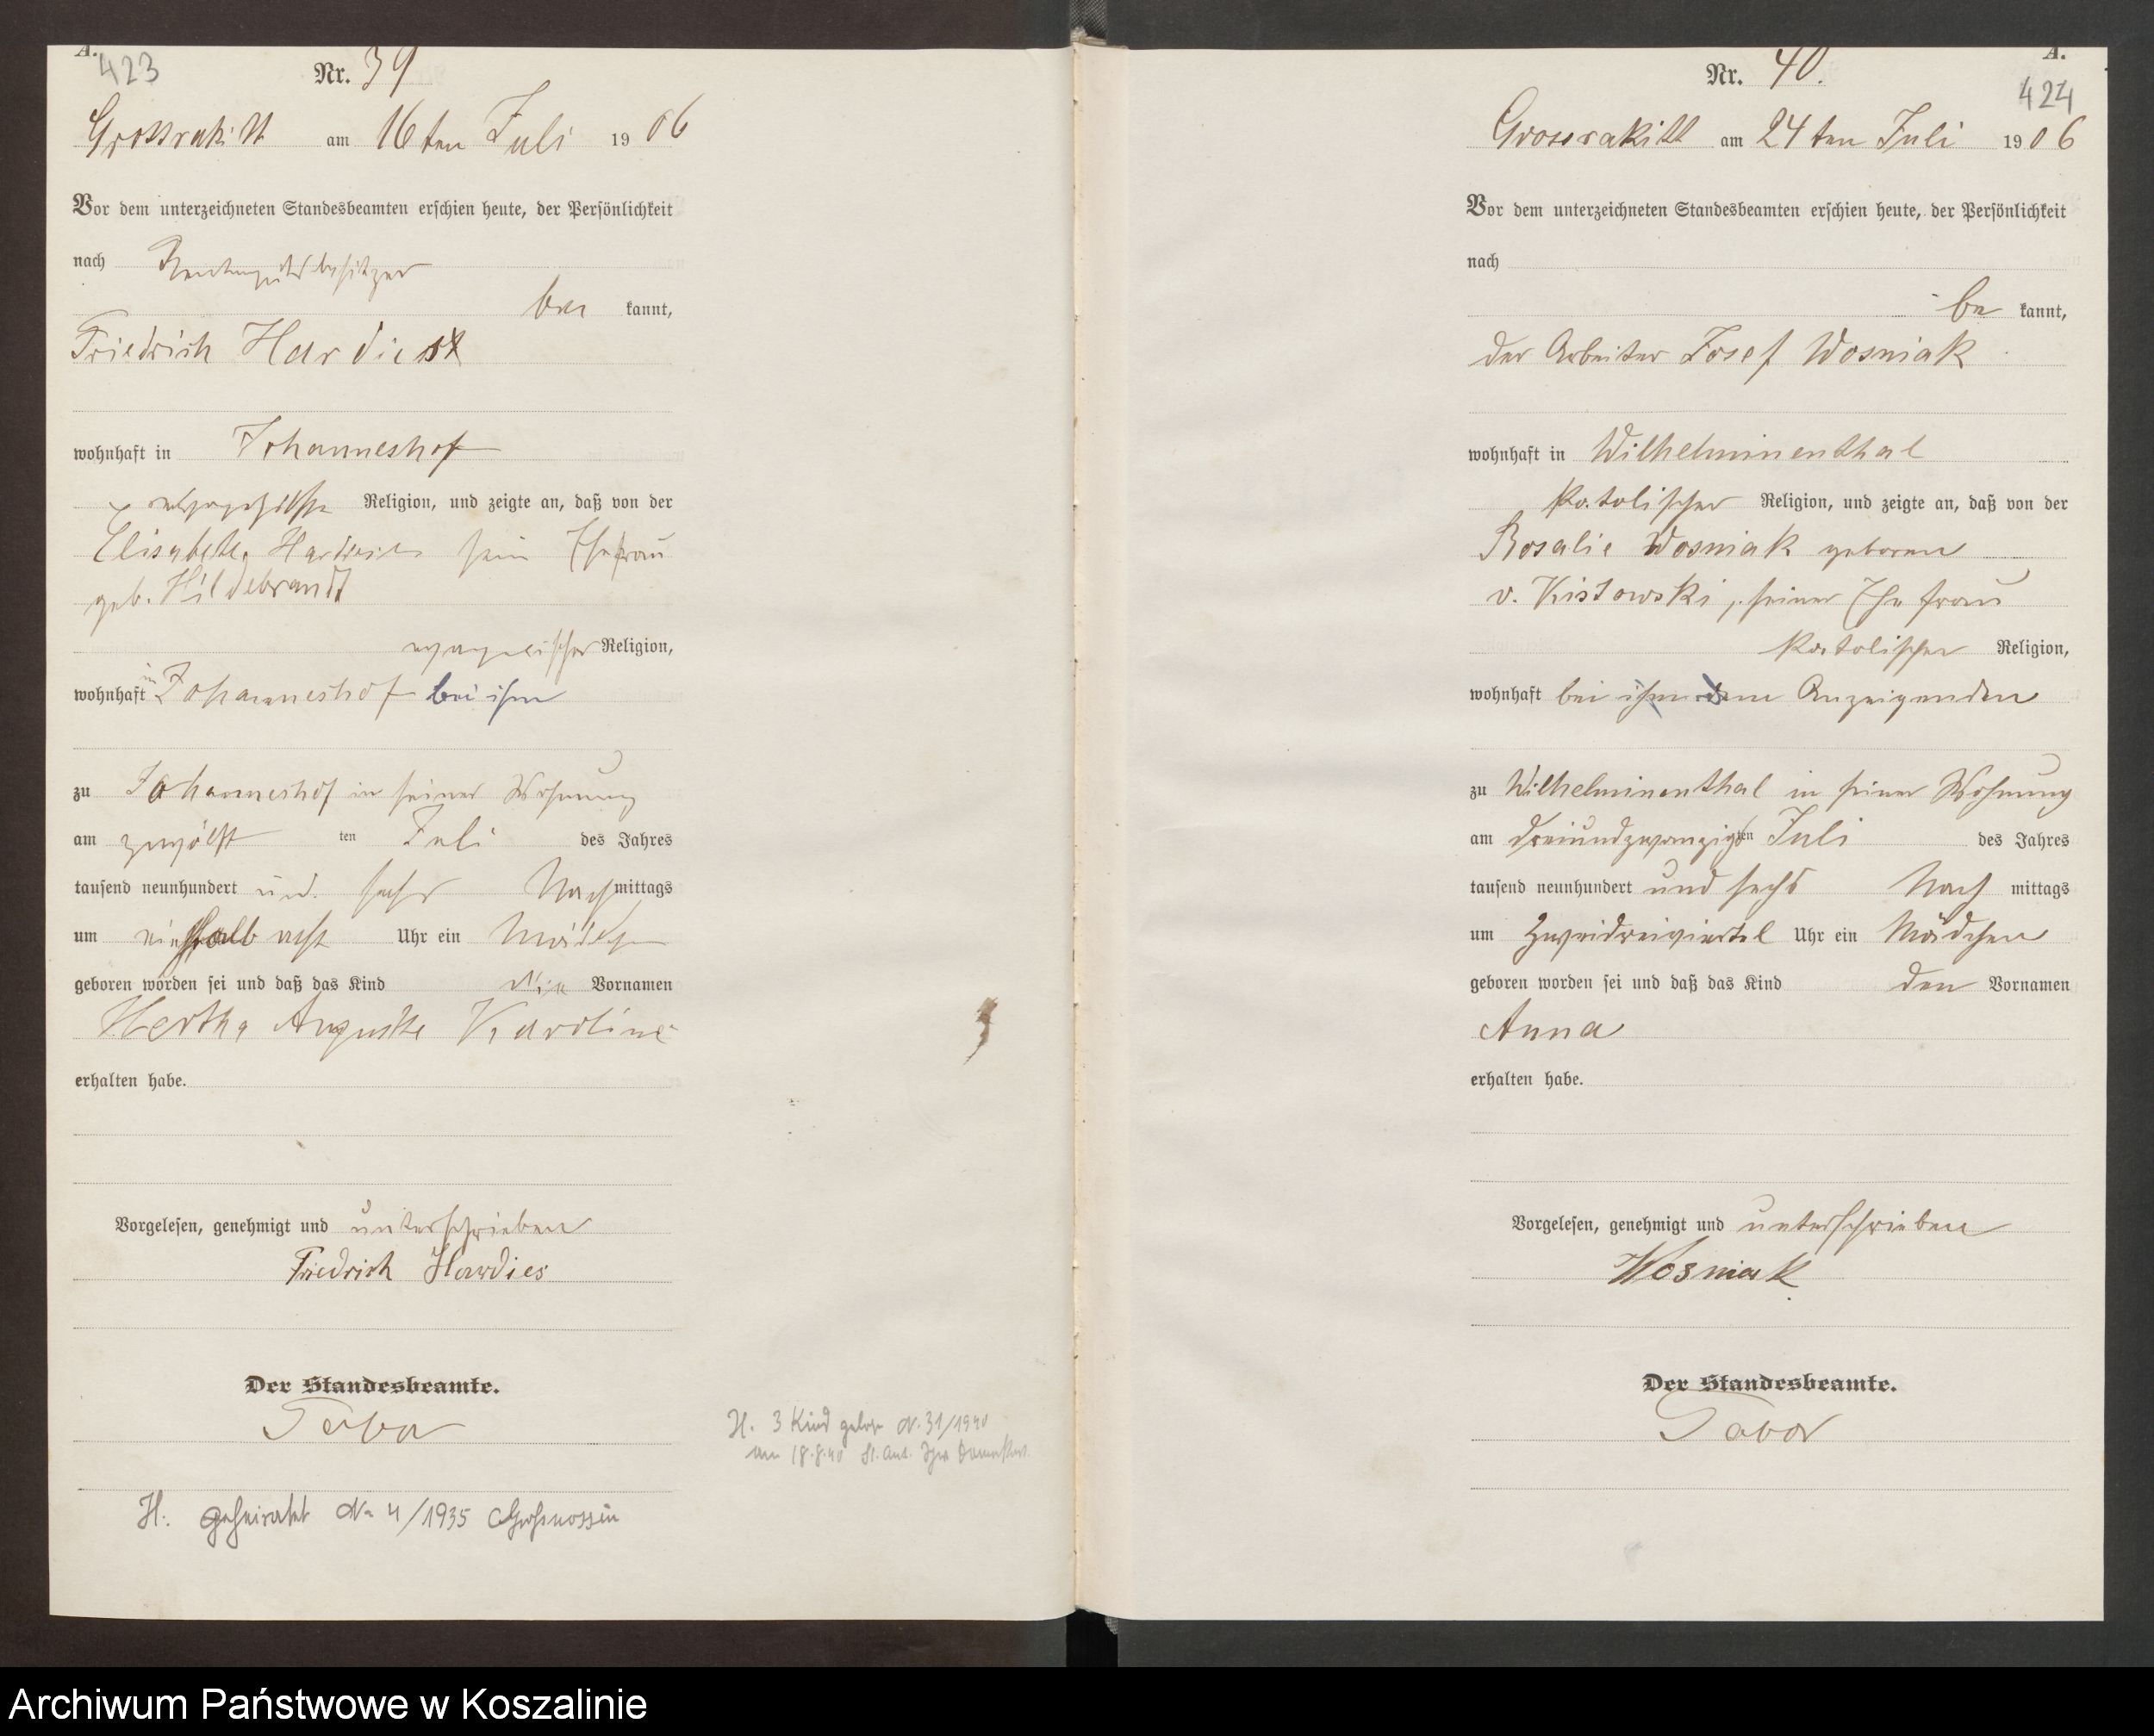 A.
423
Nr. 39
Grossrakitt am 16ten Juli 1906
Vor dem unterzeichneten Standesbeamten erschien heute, der Persönlichkeit
nach Rentengutsbesitzer
be kannt,
Friedrich Hardies
wohnhaft in Johanneshof
Religion, und zeigte an, daß von der
Elisabeth Hardies sein Ehefrau
geb. Hildebrandt
evangelischer Religion,
wohnhaft in Johanneshof bei ihm
zu Johanneshof in seiner Wohnung
am zwölf ten Juli des Jahres
tausend neunhundert und sechs Nachmittags
um halb acht Uhr ein Mädchen
geboren worden sei und daß das Kind die Vornamen
Hertha Auguste Karoline
erhalten habe.
Vorgelesen, genehmigt und unterschrieben
Friedrich Hardies
Der Standesbeamte.
Tabor
H. 3 Kind gebor N. 31/1940
am 18.8.40 St. Amt.
H. geheiratet No 4/1935 Grossnossin
A.
424
Nr. 40.
Grossrakitt am 24ten Juli 1906
Vor dem unterzeichneten Standesbeamten erschien heute, der Persönlichkeit
nach
be kannt,
der Arbeiter Josef Wosniak
wohnhaft in Wilhelminenthal
katolischer Religion, und zeigte an, daß von der
Rosalie Wosniak geboren
v. Kistowski, seiner Ehefrau
katolischer Religion,
wohnhaft bei ihm dem Anzeigenden
zu Wilhelminenthal in seiner Wohnung
am dreiundzwanzigsten Juli des Jahres
tausend neunhundert und sechs Nach mittags
um zweidreiviertel Uhr ein Mädchen
geboren worden sei und daß das Kind den Vornamen
Anna
erhalten habe.
Vorgelesen, genehmigt und unterschrieben
Wosniak
Der Standesbeamte.
Tabor
Archiwum Państwowe w Koszalinie